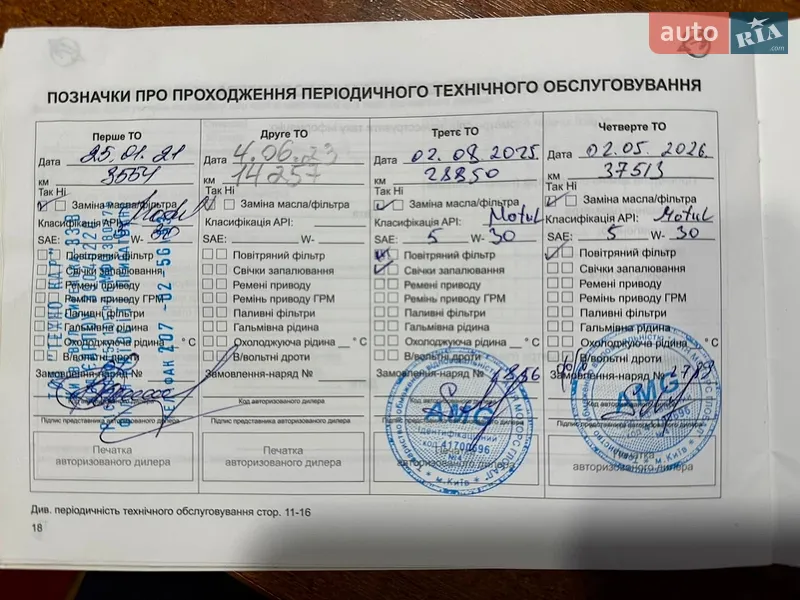 auto RIA.com
ПОЗНАЧКИ ПРО ПРОХОДЖЕННЯ ПЕРІОДИЧНОГО ТЕХНІЧНОГО ОБСЛУГОВУВАННЯ
Перше ТО
Дата 25.01.21
км 3554
Так Ні
Заміна масла/фільтра
Класифікація API: Motul
SAE: 5 W- 30
Повітряний фільтр
Свічки запалювання
Ремені приводу
Ремінь приводу ГРМ
Паливні фільтри
Гальмівна рідина
Охолоджуюча рідина ° C
В/вольтні дроти
Замовлення-наряд №
Підпис представника авторизованого дилера
Печатка
авторизованого дилера
Друге ТО
Дата 4.06.23
км 14257
Так Ні
Заміна масла/фільтра
Класифікація API:
SAE: W-
Повітряний фільтр
Свічки запалювання
Ремені приводу
Ремінь приводу ГРМ
Паливні фільтри
Гальмівна рідина
Охолоджуюча рідина ° C
В/вольтні дроти
Замовлення-наряд №
Код авторизованого дилера
Підпис представника авторизованого дилера
Печатка
авторизованого дилера
Третє ТО
Дата 02.08 2025
км 28850
Так Ні
Заміна масла/фільтра
Класифікація API: Motul
SAE: 5 W- 30
Повітряний фільтр
Свічки запалювання
Ремені приводу
Ремінь приводу ГРМ
Паливні фільтри
Гальмівна рідина
Охолоджуюча рідина ° C
В/вольтні дроти
Замовлення-наряд №
AMG
Ідентифікаційний
код 41700696
м.Київ
Четверте ТО
Дата 02.05. 2026
км 37513
Так Ні
Заміна масла/фільтра
Класифікація API: Motul
SAE: 5 W- 30
Повітряний фільтр
Свічки запалювання
Ремені приводу
Ремінь приводу ГРМ
Паливні фільтри
Гальмівна рідина
Охолоджуюча рідина ° C
В/вольтні дроти
Замовлення-наряд №
AMG
м.Київ
Печатка
авторизованого дилера
Див. періодичність технічного обслуговування стор. 11-16
18